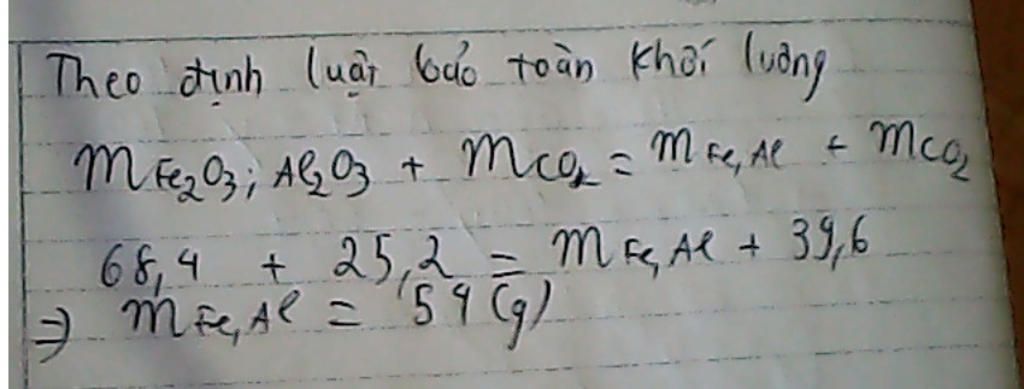 Theo định luật bảo toàn khối lượng
mFe₂O₃; Al₂O₃ + mCO₂ = mFe, Al + mCO₂
68,4 + 25,2 = mFe, Al + 39,6
⇒ mFe, Al = 54 (g)